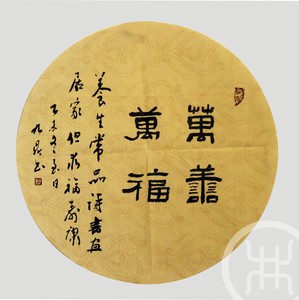 萬善
萬福
養生常品詩書畫
居家但求福壽康
乙未冬日
九書